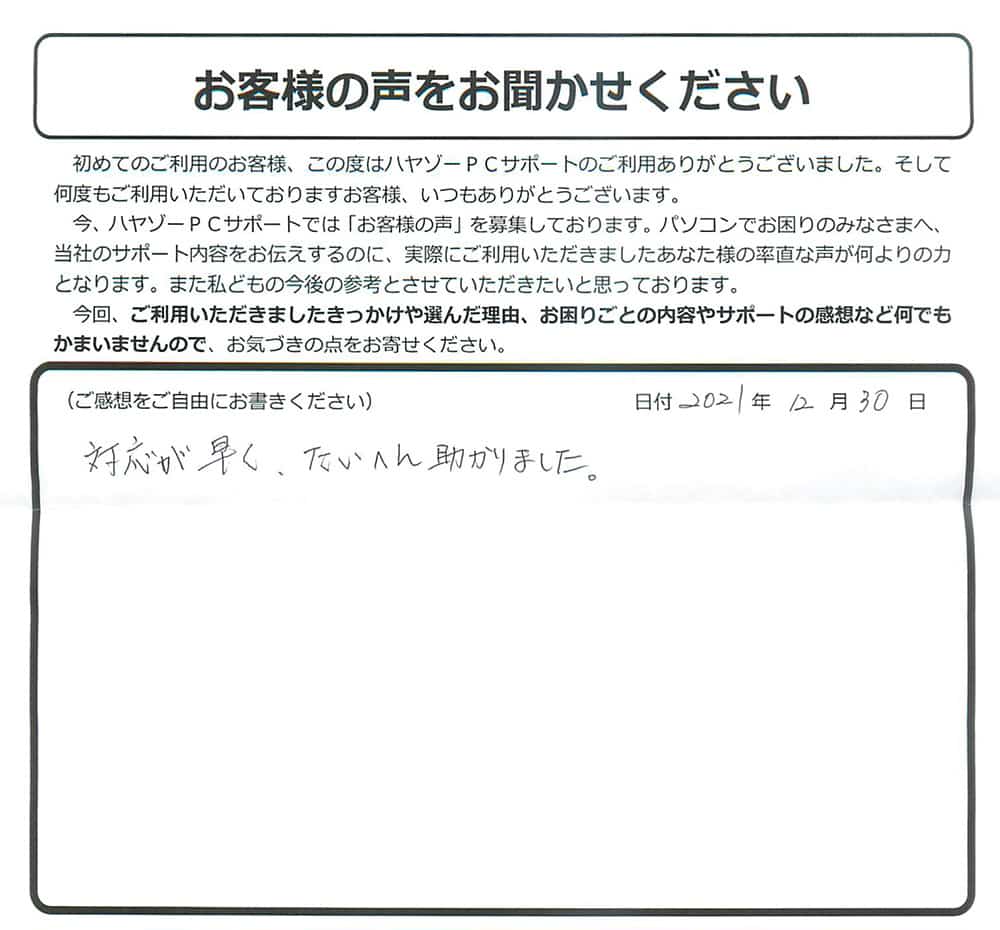 お客様の声をお聞かせください
初めてのご利用のお客様、この度はハヤゾーＰＣサポートのご利用ありがとうございました。そして
何度もご利用いただいておりますお客様、いつもありがとうございます。
今、ハヤゾーＰＣサポートでは「お客様の声」を募集しております。パソコンでお困りのみなさまへ、
当社のサポート内容をお伝えするのに、実際にご利用いただきましたあなた様の率直な声が何よりの力
となります。また私どもの今後の参考とさせていただきたいと思っております。
今回、ご利用いただきましたきっかけや選んだ理由、お困りごとの内容やサポートの感想など何でも
かまいませんので、お気づきの点をお寄せください。
（ご感想をご自由にお書きください） 日付 2021 年 12 月 30 日
対応が早く、たいへん助かりました。